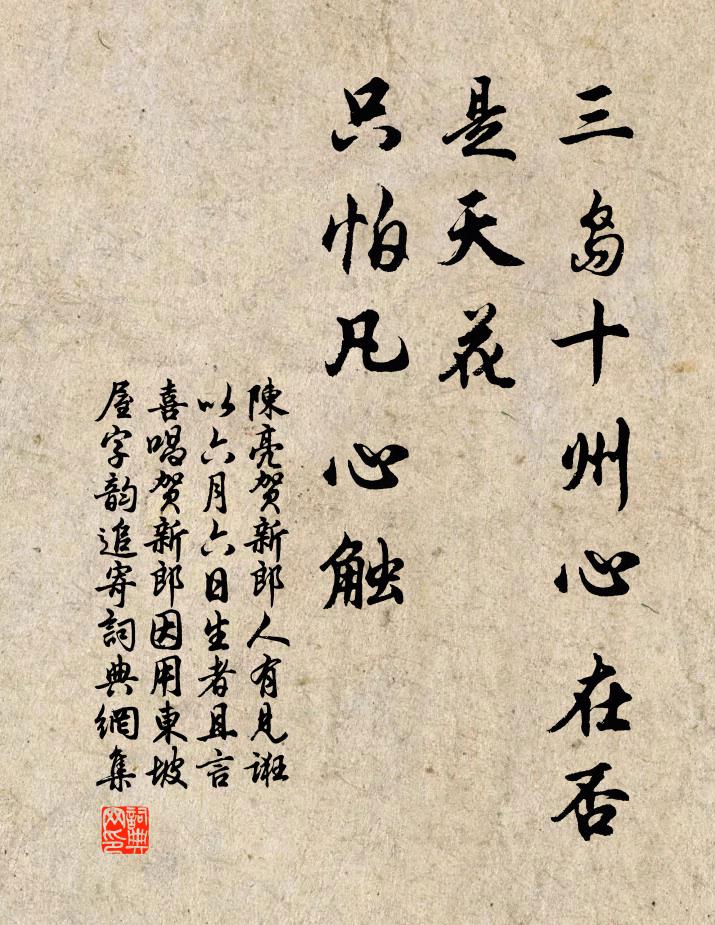 三岛十州心在否
是天花
只怕凡心触
陳亮贺新郎人有见誑
以六月六日生者且言
喜唱贺新郎因用東坡
屋字韵追寄詞典網集
詞典网印